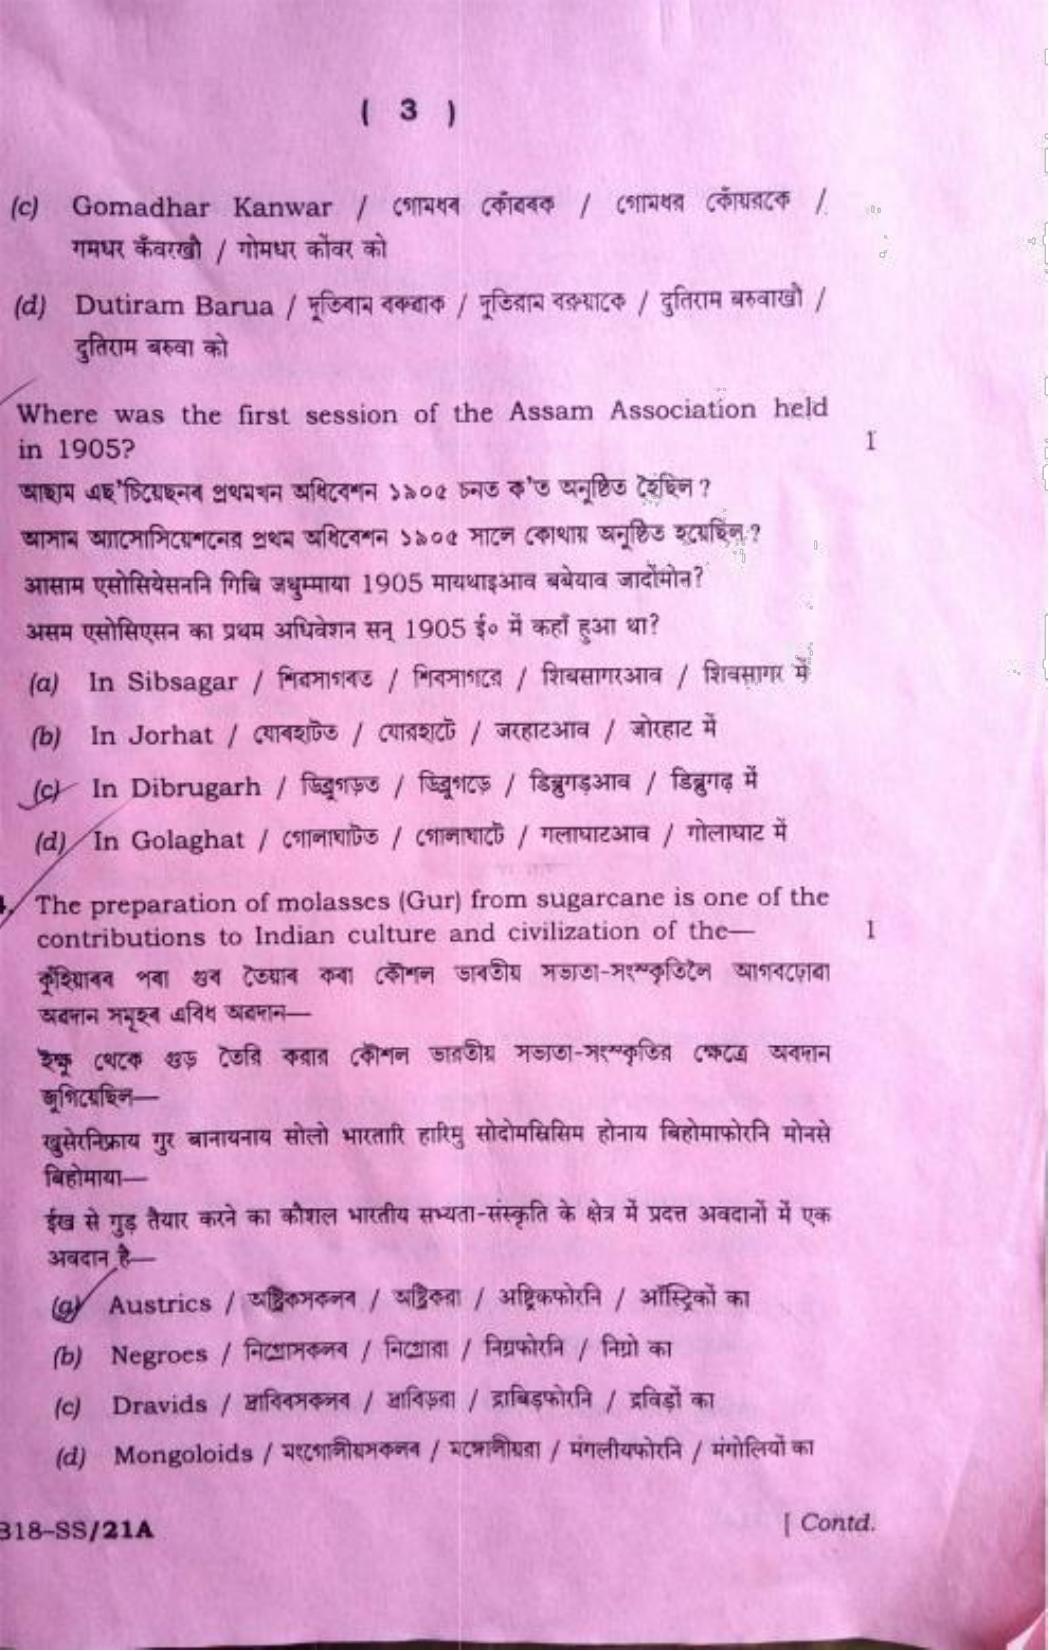 ( 3 )
(c) Gomadhar Kanwar / গোমধৰ কোঁৱৰক / গোমধর কোঁয়রকে /
गमधर कँवरखौ / गोमधर कोंवर को
(d) Dutiram Barua / দূতিৰাম বৰুৱাক / দূতিরাম বরুয়াকে / दुतिराम बरुवाखौ /
दुतिराम बरुवा को
Where was the first session of the Assam Association held
in 1905? 1
আছাম এছ'চিয়েছনৰ প্ৰথমখন অধিবেশন ১৯০৫ চনত ক'ত অনুষ্ঠিত হৈছিল ?
আসাম অ্যাসোসিয়েশনের প্রথম অধিবেশন ১৯০৫ সালে কোথায় অনুষ্ঠিত হয়েছিল ?
आसाम एसोसियेसननि गिबि जथुम्माया 1905 मायथाइआव बबेयाव जादोंमोन?
असम एसोसिएसन का प्रथम अधिवेशन सन् 1905 ई० में कहाँ हुआ था?
(a) In Sibsagar / শিৱসাগৰত / শিবসাগরে / शिबसागरआव / शिवसागर में
(b) In Jorhat / যোৰহাটত / যোরহাটে / जरहाटआव / जोरहाट में
(c) In Dibrugarh / ডিব্ৰুগড়ত / ডিব্রুগড়ে / डिब्रुगड़आव / डिब्रुगढ़ में
(d) In Golaghat / গোলাঘাটত / গোলাঘাটে / गलाघाटआव / गोलाघाट में
The preparation of molasses (Gur) from sugarcane is one of the
contributions to Indian culture and civilization of the— 1
কুঁহিয়াৰৰ পৰা গুৰ তৈয়াৰ কৰা কৌশল ভাৰতীয় সভ্যতা-সংস্কৃতিলৈ আগবঢ়োৱা
অৱদান সমূহৰ এবিধ অৱদান—
ইক্ষু থেকে গুড় তৈরি করার কৌশল ভারতীয় সভ্যতা-সংস্কৃতির ক্ষেত্রে অবদান
জুগিয়েছিল—
खुसेरनिफ्राय गुर बानायनाय सोलो भारतारि हारिमु सोदोमस्रिसिम होनाय बिहोमाफोरनि मोनसे
बिहोमाया—
ईख से गुड़ तैयार करने का कौशल भारतीय सभ्यता-संस्कृति के क्षेत्र में प्रदत्त अवदानों में एक
अवदान है—
(a) Austrics / অষ্ট্ৰিকসকলৰ / অষ্ট্রিকরা / अष्ट्रिकफोरनि / ऑस्ट्रिकों का
(b) Negroes / নিগ্ৰোসকলৰ / নিগ্রোরা / निग्रफोरनि / निग्रो का
(c) Dravids / দ্ৰাবিৰসকলৰ / দ্রাবিড়রা / द्राबिड़फोरनि / द्रविड़ों का
(d) Mongoloids / মংগোলীয়সকলৰ / মঙ্গোলীয়রা / मंगलीयफोरनि / मंगोलियों का
318–SS/21A [ Contd.